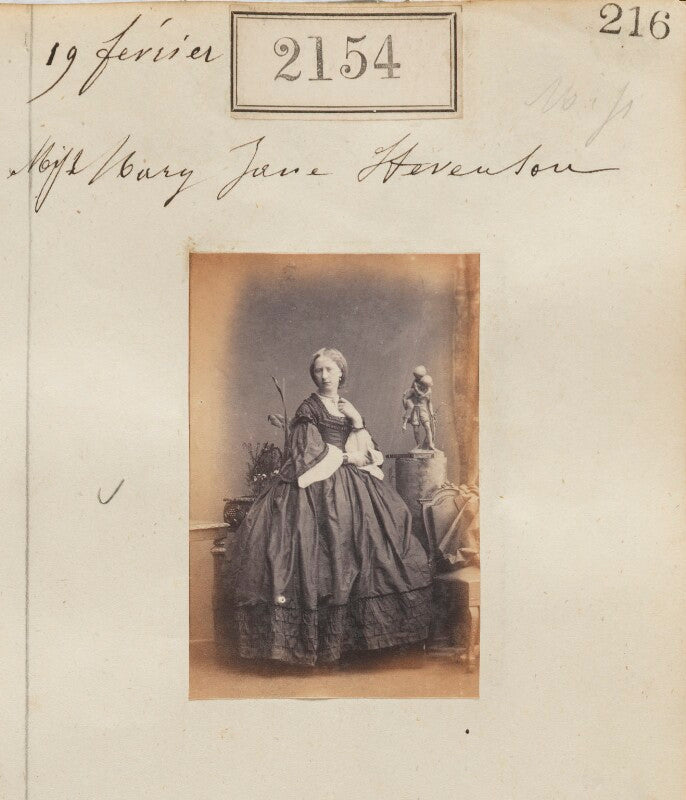 216
19 février
2154
Miss Mary Jane Stevenson